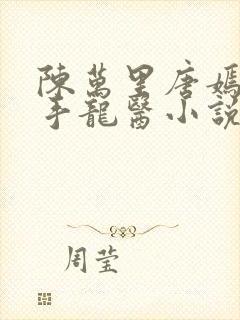 陳萬里唐嫣
手龍醫小說
周莹